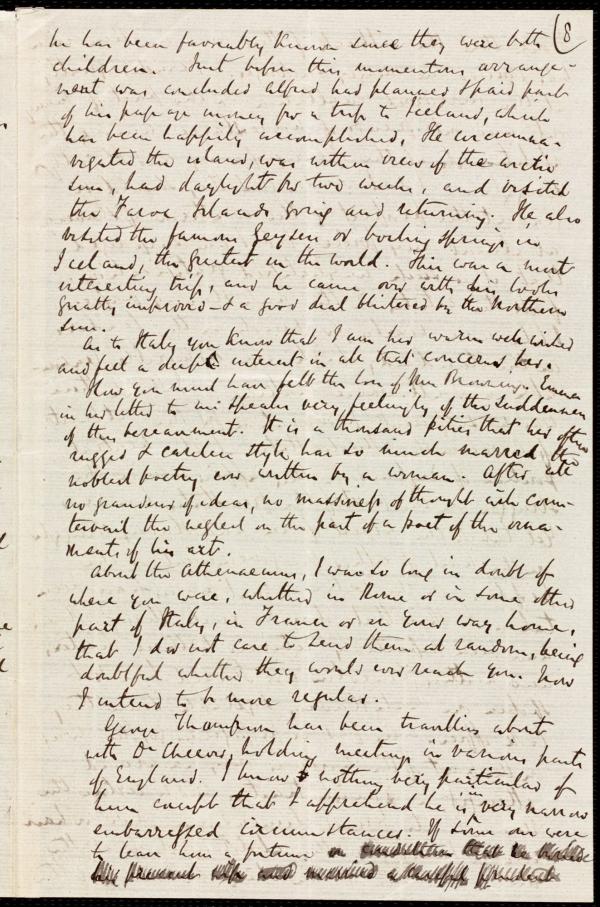 (8
he has been favorably known since they were both
children. Just before this momentous arrange-
ment was concluded Alfred had planned & paid part
of his passage money for a trip to Iceland, which
has been happily accomplished. He circumna-
vigated the island, was within view of the arctic
sun, had daylight for two weeks, and visited
the Faroe Islands going and returning. He also
visited the famous Geysers or boiling springs in
Iceland, the greatest in the world. This was a most
interesting trip, and he came over with his looks
greatly improved & a good deal blistered by the Northern
sun.
As to Italy you know that I am her warm well wisher
and feel a deep interest in all that concerns her.
How you must have felt the loss of Mrs Browning. Emma
in her letter to me speaks very feelingly of the suddenness
of this bereavement. It is a thousand pities that her often
rugged & careless style has so much marred the
noblest poetry ever written by a woman. After all
no grandeur of ideas, no massiness of thought will coun-
tervail the neglect on the part of a poet of the orna-
ments of his art.
About the Athenaeums, I was so long in doubt of
where you were, whether in Rome or in some other
part of Italy, in France or on your way home,
that I did not care to send them at random, being
doubtful whether they would ever reach you. Now
I intend to be more regular.
George Thompson has been travelling about
with Dr Cheever, holding meetings in various parts
of England. I know nothing very particular of
him except that I apprehend he is in very narrow
embarrassed circumstances. If some one were
to leave him a fortune